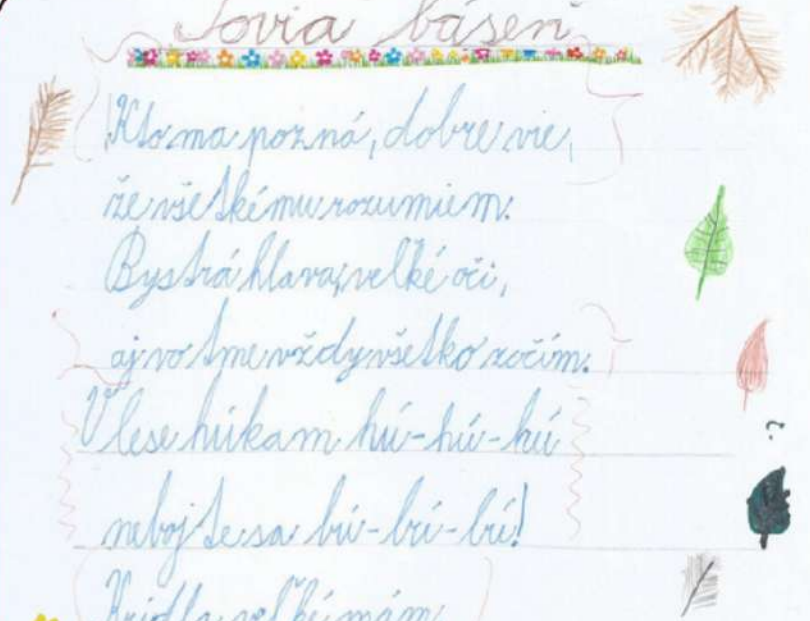 Sovia báseň
Kto ma pozná, dobre vie,
že všetkému rozumiem.
Bystrá hlava, veľké oči,
aj vo tme vždy všetko zočím.
V lese húkam hú-hú-hú
nebojte sa bú-bú-bú!
Krídla veľké mám
?